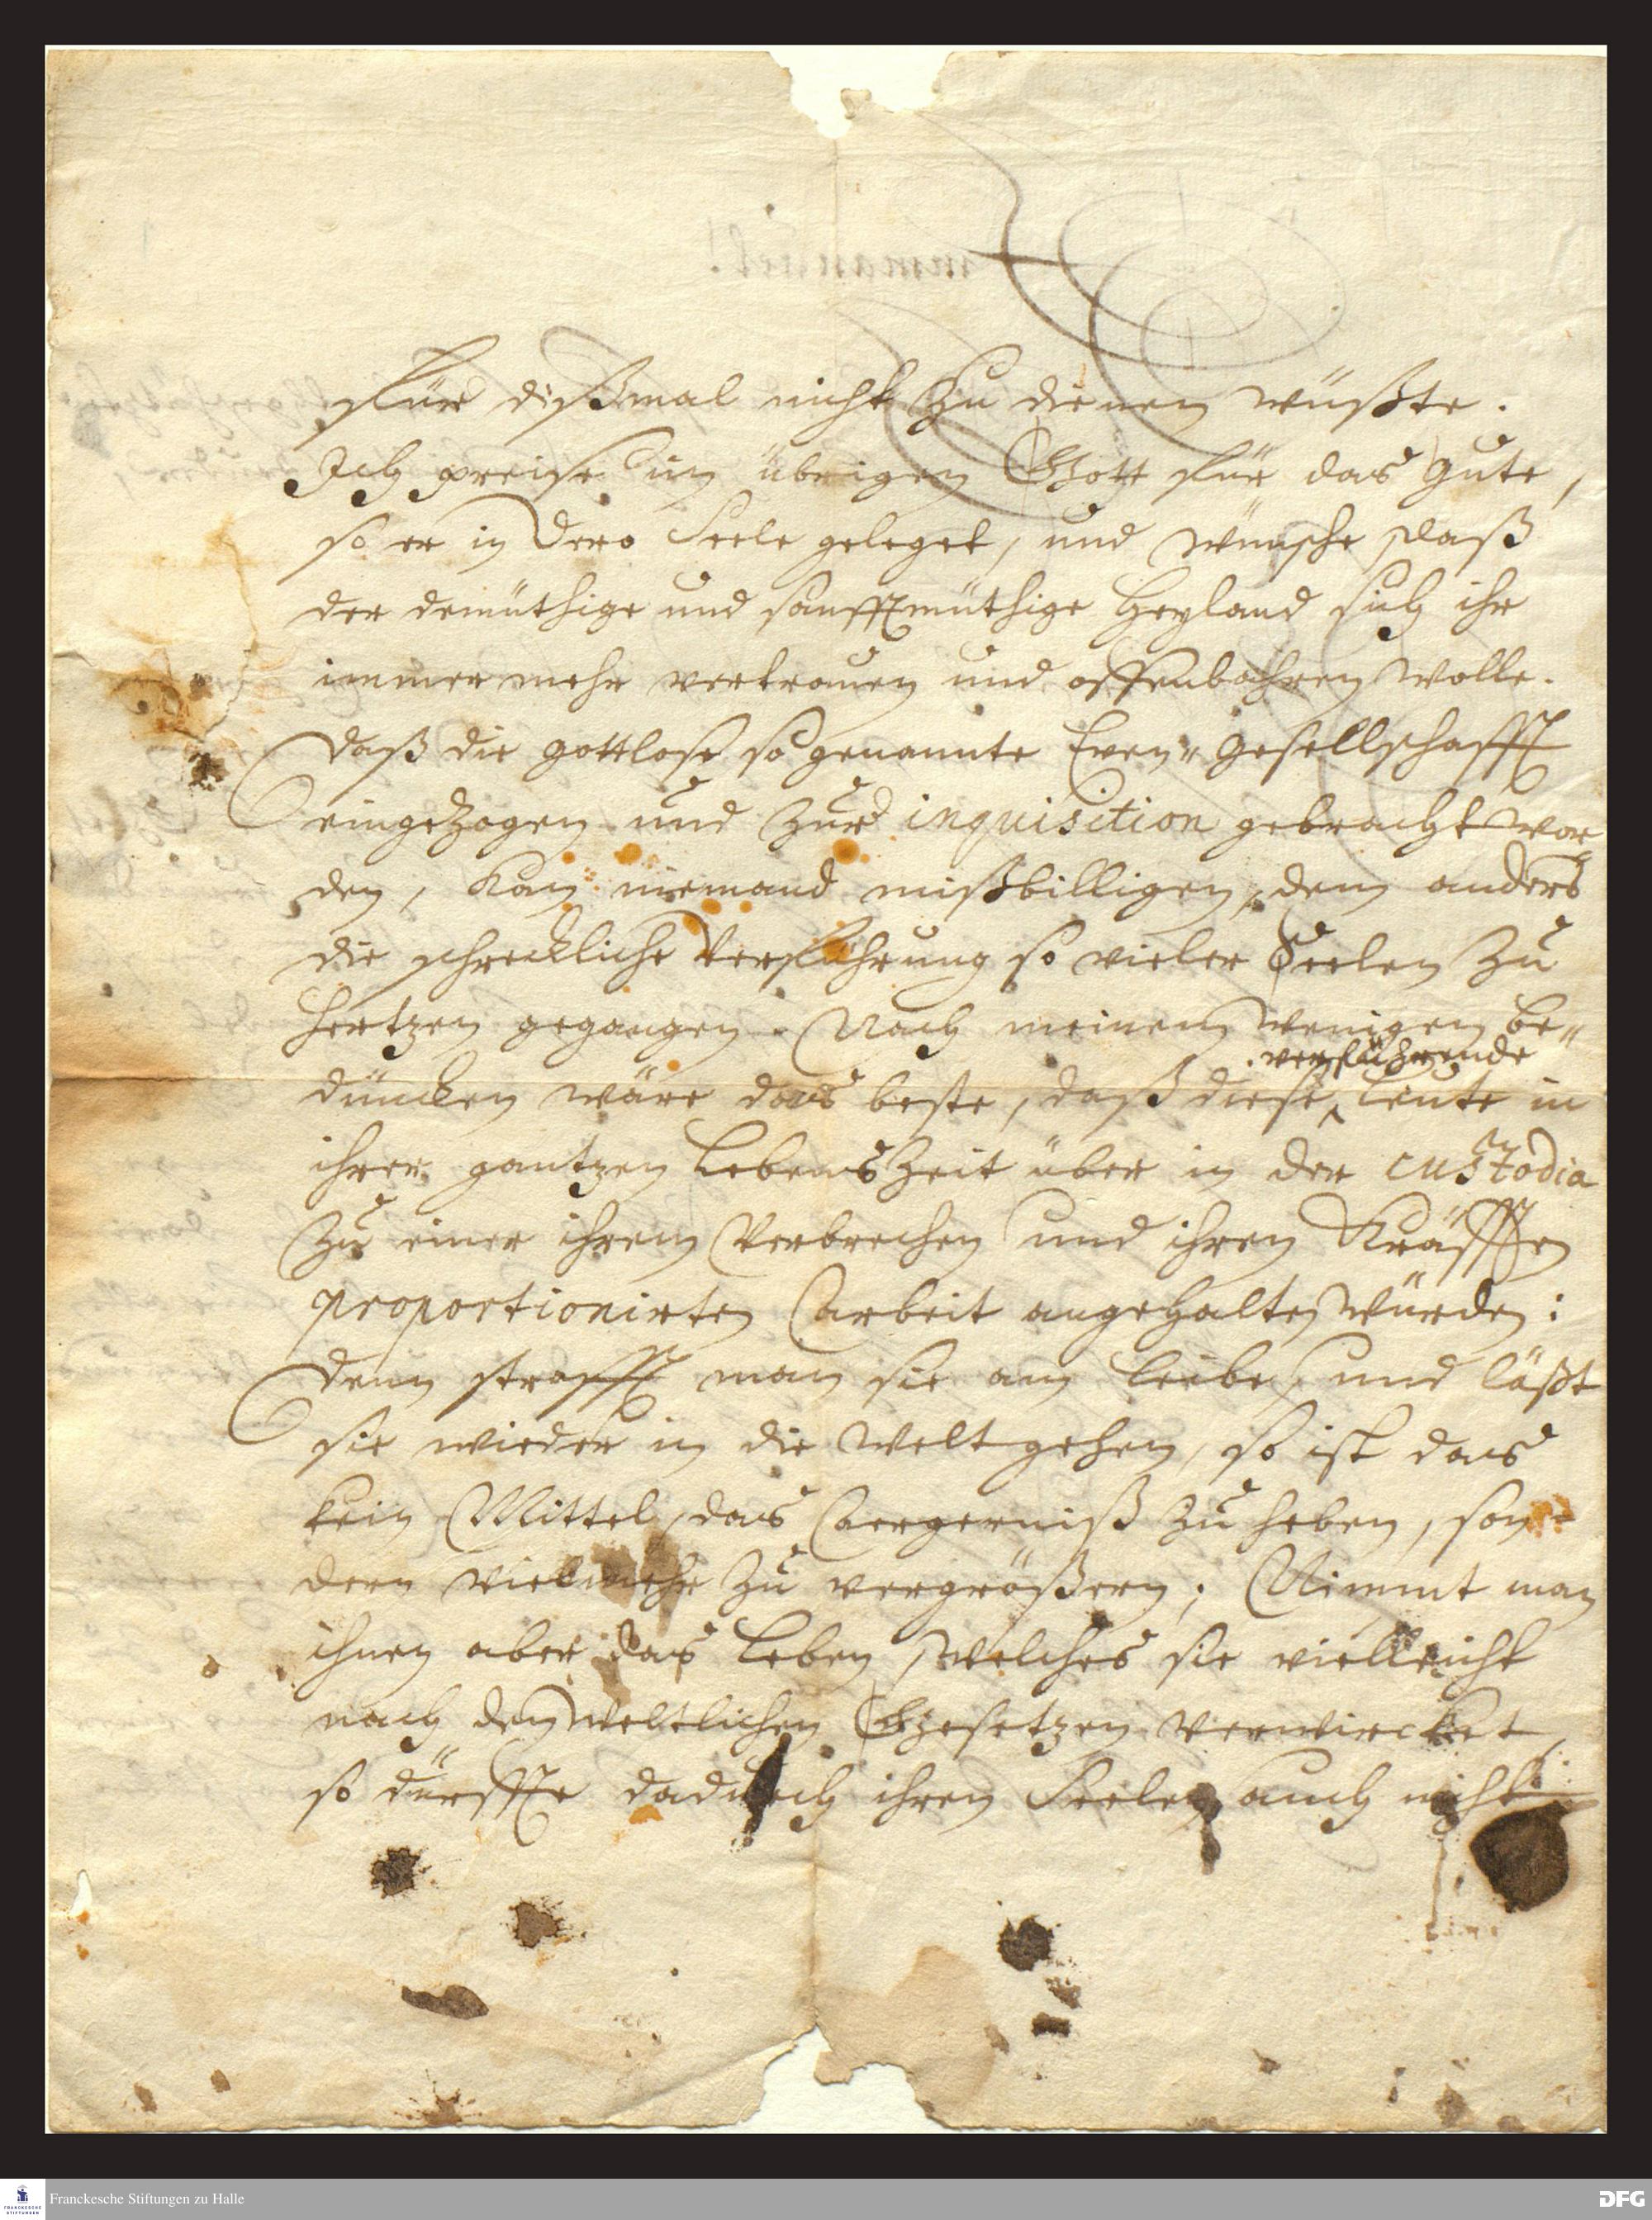 für dißmal nicht zu dienen wüßte.
Ich preise im übrigen Gott für das Gute,
so er in Dero Seele geleget, und wünsche, daß
der demüthige und sanfftmüthige Heyland sich ihr
immer mehr vertrauen und offenbahren wolle.
Daß die gottlose so genannte Even-Gesellschafft
eingezogen und zur inquisition gebracht wor-
den, kan niemand mißbilligen, dem anders
die schreckliche Verführung so vieler Seelen zu
Hertzen gegangen. Nach meinem wenigen be-
verführende
düncken wäre das beste, daß diese Leute in
ihrer gantzen LebensZeit über in der custodia
zu einer ihrem Verbrechen und ihren Kräfften
proportionirten Arbeit angehalten würden:
Denn strafft man sie am Leibe, und läßt
sie wieder in die Welt gehen, so ist das
kein Mittel, das Aergerniß zu heben, son-
dern vielmehr zu vergrößern; Nimmt man
ihnen aber das Leben, welches sie vielleicht
nach den weltlichen Gesetzen verwircket,
so dürffte dadurch ihren Seelen auch nicht
Franckesche Stiftungen zu Halle
DFG